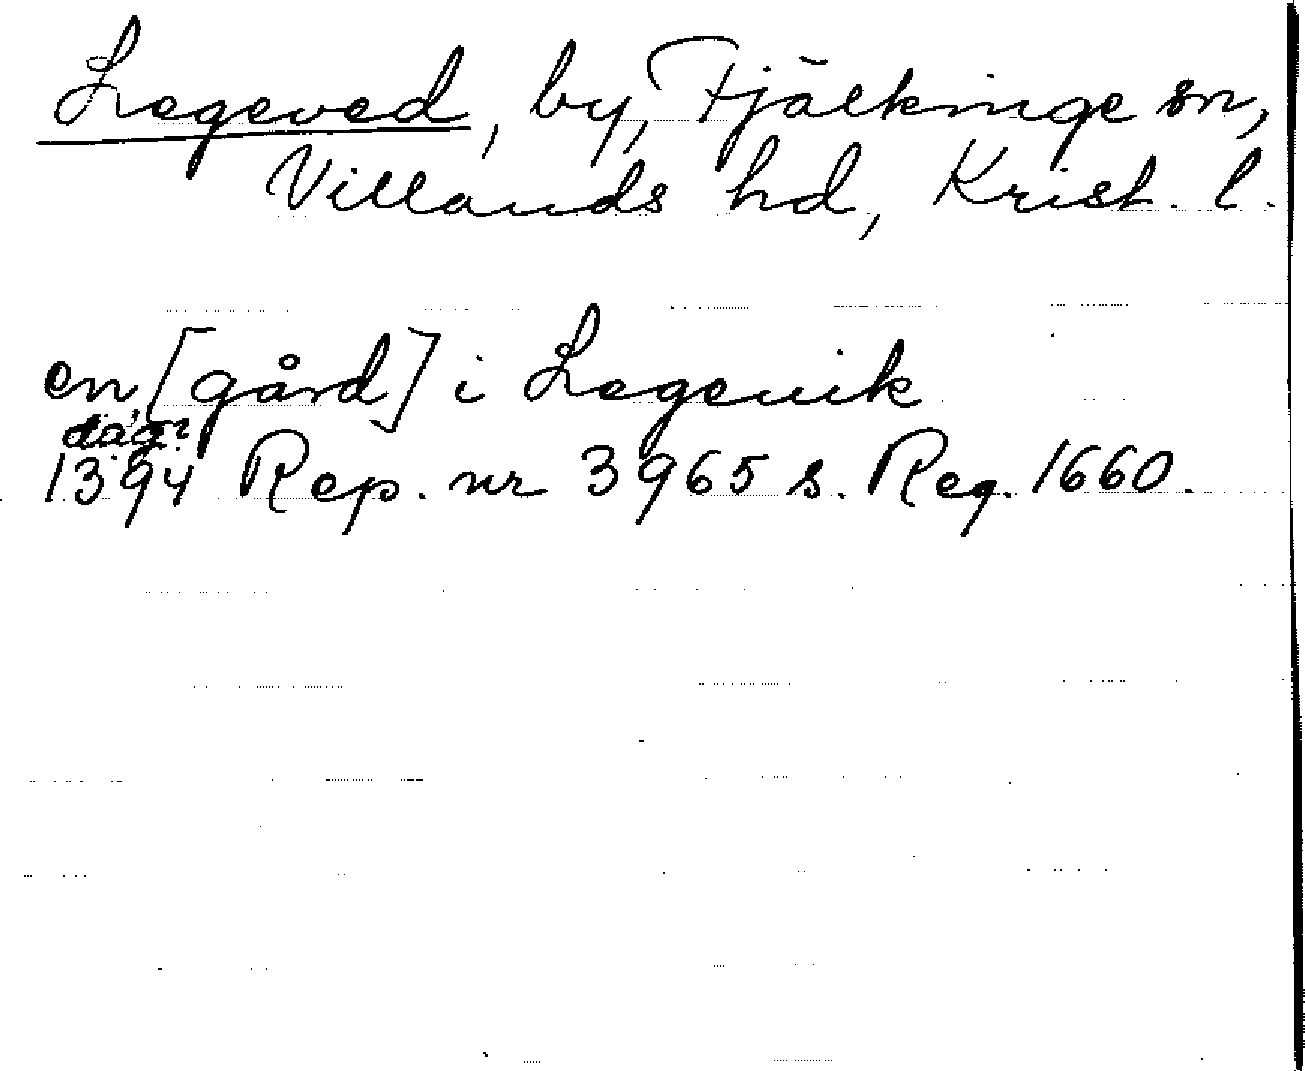 Legeved, by, Fjälkinge sn,
Villands hd, Krist. l.
en [gård] i Legeuik
dåg?
1394 Rep. nr 3965 s. Reg. 1660.